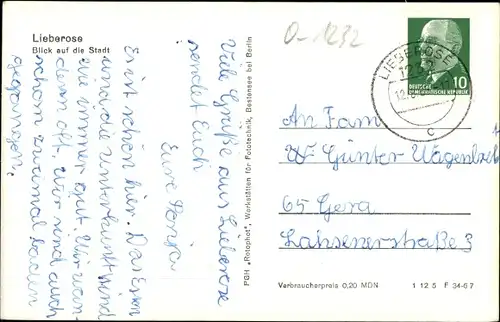 Lieberose
Blick auf die Stadt
Viele Grüße aus Lieberose
sendet Euch
Eure
Es ist schön hier. Das Essen
und die Unterkunft sind
wie immer gut. Wir wan-
dern oft. Wir sind auch
schon zweimal baden
gegangen.
PGH „Rotophot", Werkstätten für Fototechnik, Bestensee bei Berlin
O-1232
LIEBEROSE
1232
12.
c
DEUTSCHE
DEMOKRATISCHE REPUBLIK
10
An Fam
W. Günter Wagenbret
65 Gera
Laisenerstraße 3
Verbraucherpreis 0,20 MDN
1 12 5 F 34-67